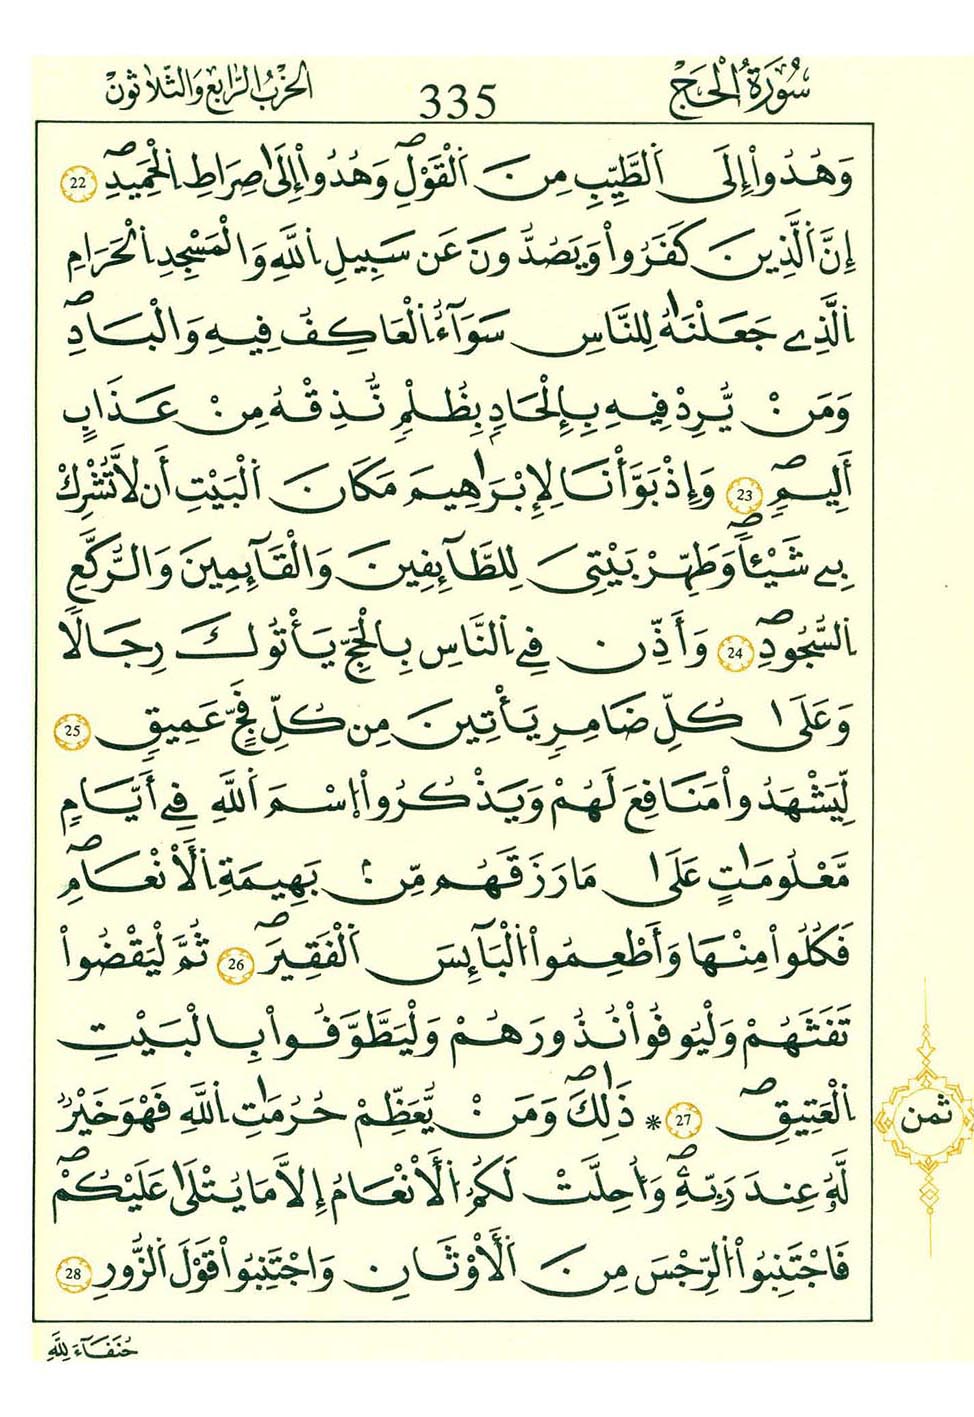 سُورَةُ الْحَجِّ 335 الحِزْبُ الرَّابِعُ وَالثَّلَاثُونَ
وَهُدُوٓاْ إِلَى اَ۬لطَّيِّبِ مِنَ اَ۬لْقَوْلِۖ وَهُدُوٓاْ إِلَىٰ صِرَٰطِ اِ۬لْحَمِيدِۖ 22
إِنَّ اَ۬لذِينَ كَفَرُواْ وَيَصُدُّونَ عَن سَبِيلِ اِ۬للَّهِ وَالْمَسْجِدِ اِ۬لْحَرَامِ
اِ۬لذِے جَعَلْنَٰهُ لِلنَّاسِ سَوَآءٌ اُ۬لْعَاكِفُ فِيهِ وَالْبَادِۦۖ
وَمَنْ يُّرِدْ فِيهِ بِإِلْحَادِۢ بِظُلْمٖ نُّذِقْهُ مِنْ عَذَابٍ
أَلِيمٖۖ 23 وَإِذْ بَوَّأْنَا لِإِبْرَٰهِيمَ مَكَانَ اَ۬لْبَيْتِ أَن لَّا تُشْرِكْ
بِے شَيْـٔاٗۖ وَطَهِّرْ بَيْتِيَ لِلطَّآئِفِينَ وَالْقَآئِمِينَ وَالرُّكَّعِ
اِ۬لسُّجُودِۖ 24 وَأَذِّن فِے اِ۬لنَّاسِ بِالْحَجِّ يَأْتُوكَ رِجَالاٗ
وَعَلَىٰ كُلِّ ضَامِرٖ يَأْتِينَ مِن كُلِّ فَجٍّ عَمِيقٖ 25
لِّيَشْهَدُواْ مَنَٰفِعَ لَهُمْ وَيَذْكُرُواْ اُ۪سْمَ اَ۬للَّهِ فِےٓ أَيَّامٖ
مَّعْلُومَٰتٍ عَلَىٰ مَا رَزَقَهُم مِّنۢ بَهِيمَةِ اِ۬لْأَنْعَٰمِۖ
فَكُلُواْ مِنْهَا وَأَطْعِمُواْ اُ۬لْبَآئِسَ اَ۬لْفَقِيرَۖ 26 ثُمَّ لْيَقْضُواْ
تَفَثَهُمْ وَلْيُوفُواْ نُذُورَهُمْ وَلْيَطَّوَّفُواْ بِالْبَيْتِ
اِ۬لْعَتِيقِۖ 27 * ذَٰلِكَۖ وَمَنْ يُّعَظِّمْ حُرُمَٰتِ اِ۬للَّهِ فَهْوَ خَيْرٞ
لَّهُۥ عِندَ رَبِّهِۦۖ وَأُحِلَّتْ لَكُمُ اُ۬لْأَنْعَٰمُ إِلَّا مَا يُتْلَىٰ عَلَيْكُمْۖ
فَاجْتَنِبُواْ اُ۬لرِّجْسَ مِنَ اَ۬لْأَوْثَٰنِ وَاجْتَنِبُواْ قَوْلَ اَ۬لزُّورِ 28
ثمن
حُنَفَآءَ لِلَّهِ